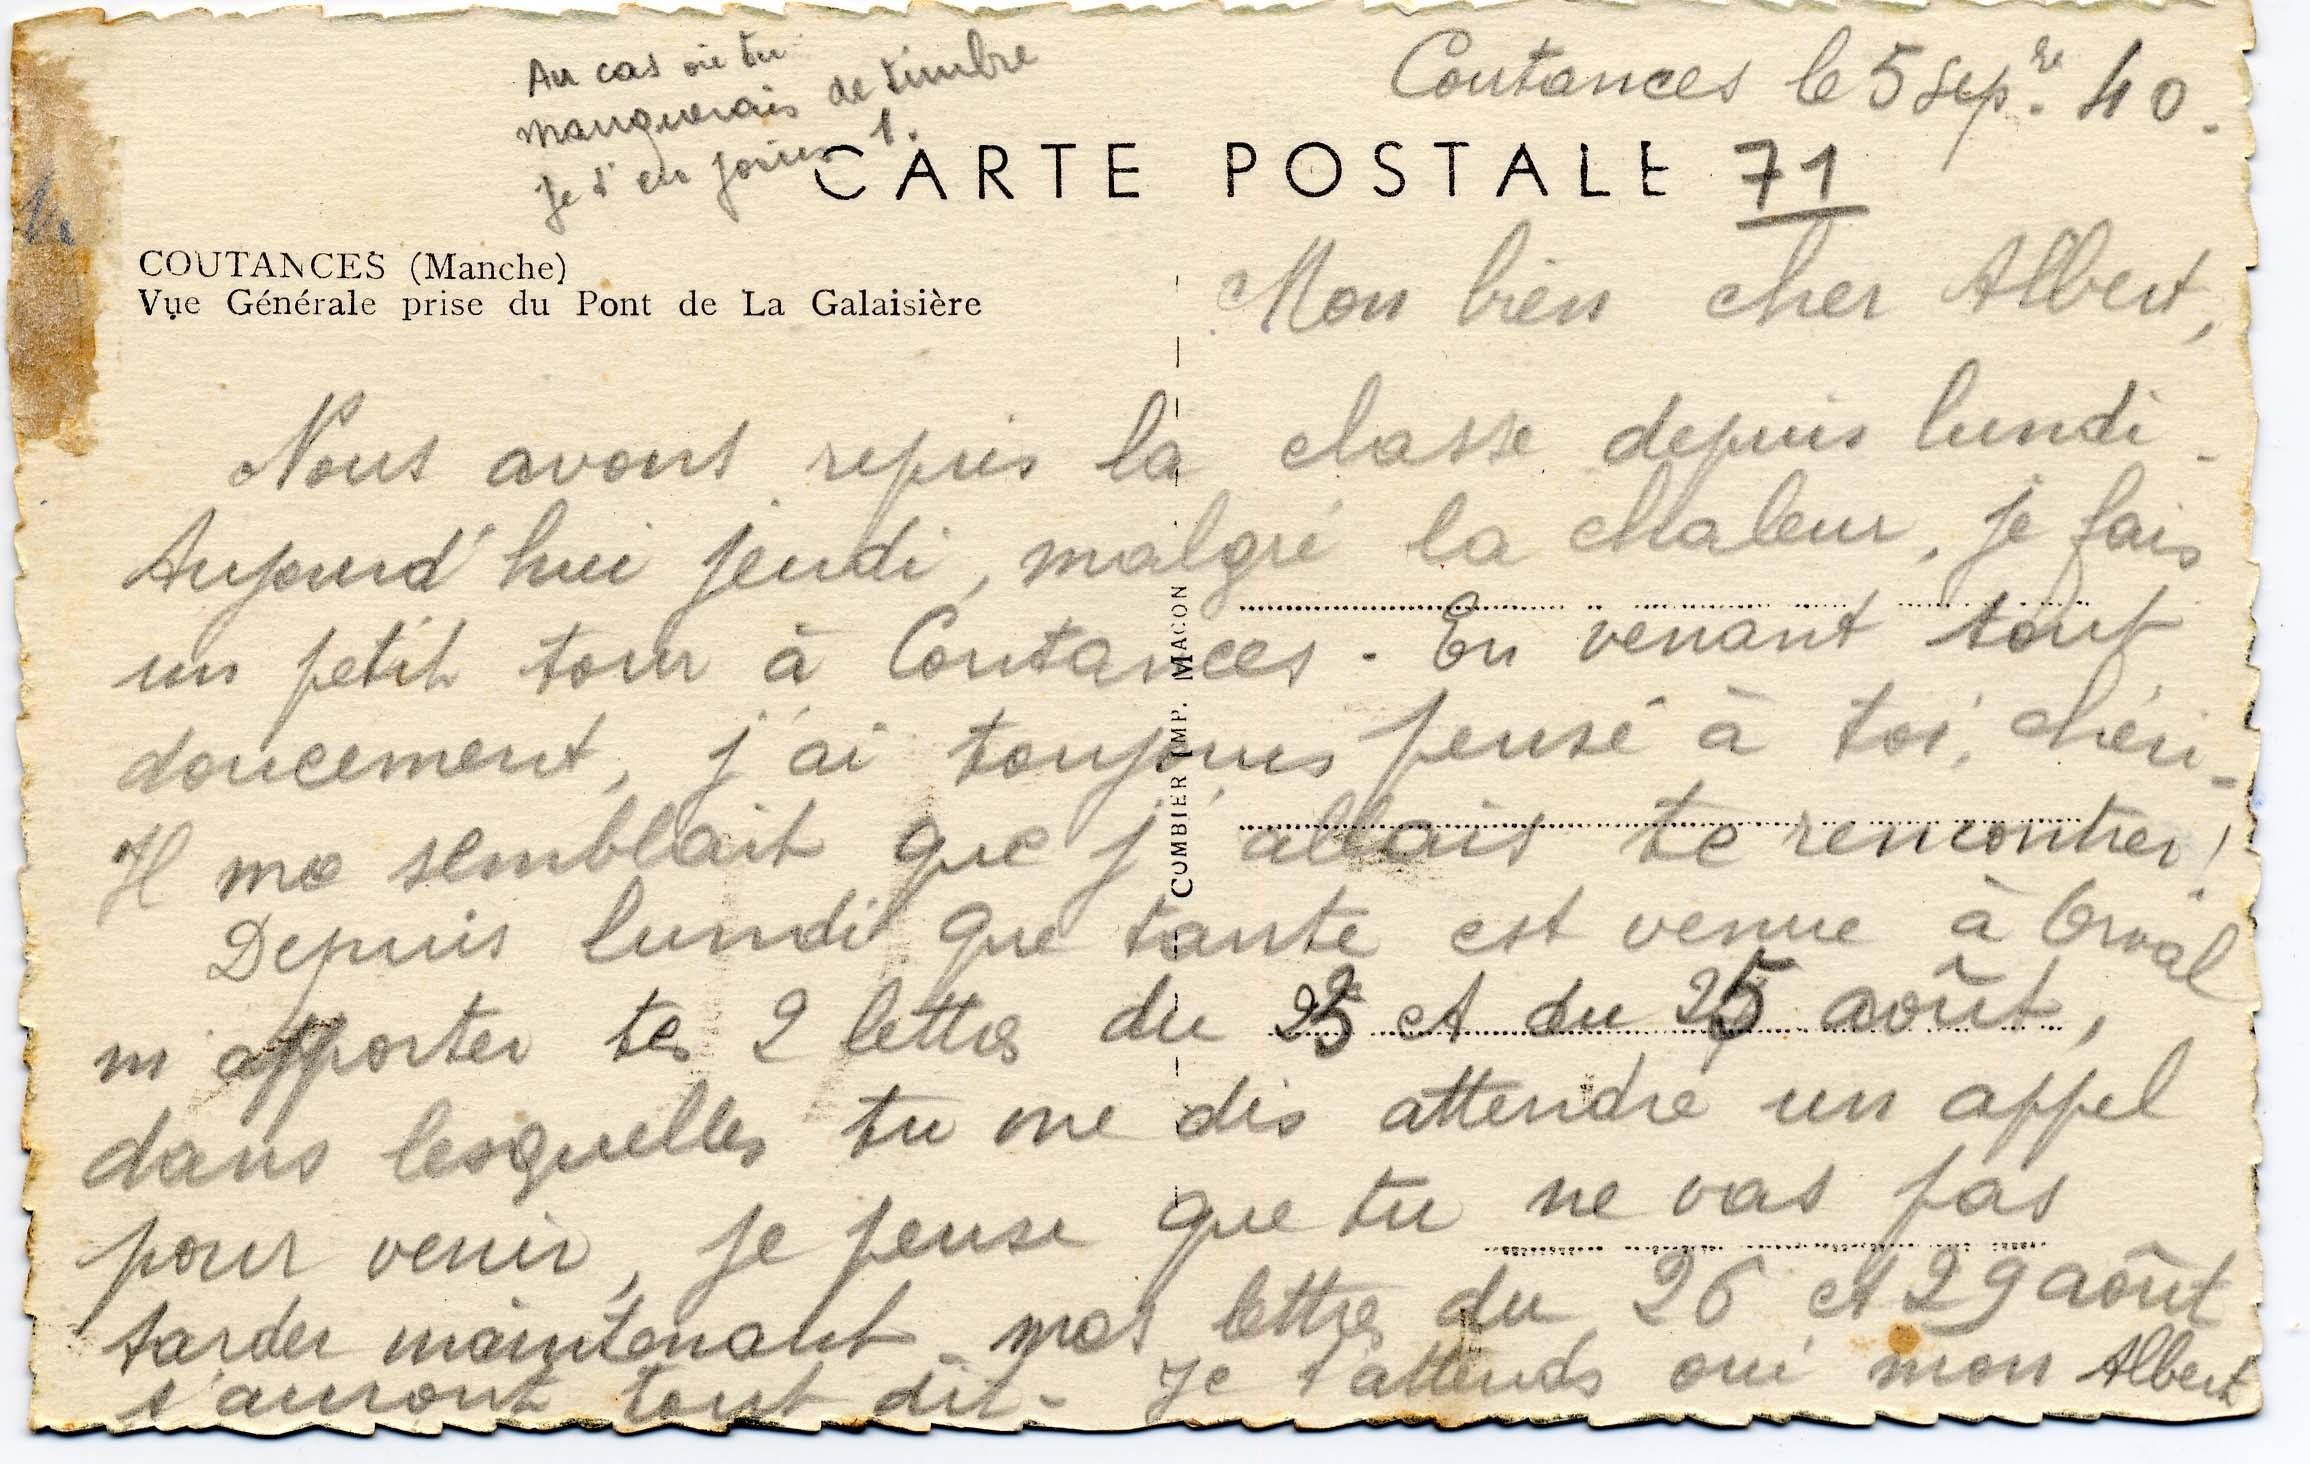 Au cas où tu
manquerais de timbre
je t'en joins 1.
Coutances le 5 Sep.re 40.
CARTE POSTALE 71
COUTANCES (Manche)
Vue Générale prise du Pont de La Galaisière
Mon bien cher Albert,
Nous avons repris la classe depuis lundi -
Aujourd'hui jeudi, malgré la chaleur, je fais
un petit tour à Coutances - En venant tout
doucement, j'ai toujours pensé à toi, chéri -
Il me semblait que j'allais te rencontrer!
Depuis lundi que tante est venue à Orval
m'apporter tes 2 lettres du 23 et du 25 août,
dans lesquelles tu me dis attendre un appel
pour venir, je pense que tu ne vas pas
tarder maintenant - mes lettres du 26 et 29 août
t'auront tout dit - Je t'attends oui mon Albert
COMBIER IMP. MACON